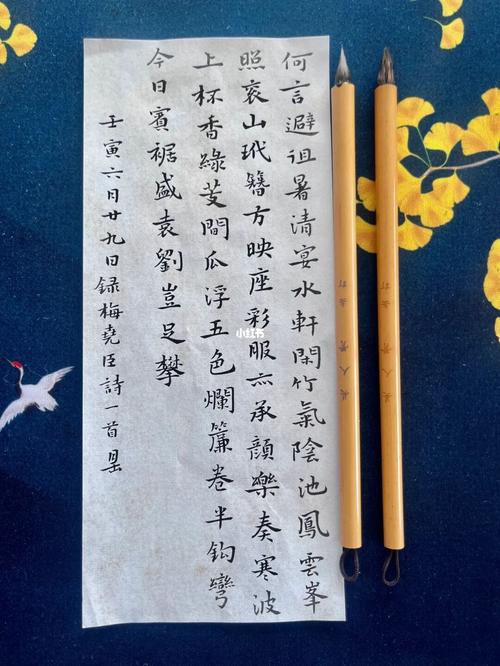 何言避徂暑清宴水軒閑竹氣陰池鳳雲峯
照衮山玳簪方映座彩服亦承顔樂奏寒波
上杯香綠芰間瓜浮五色爛簾卷半鈎彎
今日賓裾盛袁劉豈足攀
壬寅六月廿九日録梅堯臣詩一首
小红书